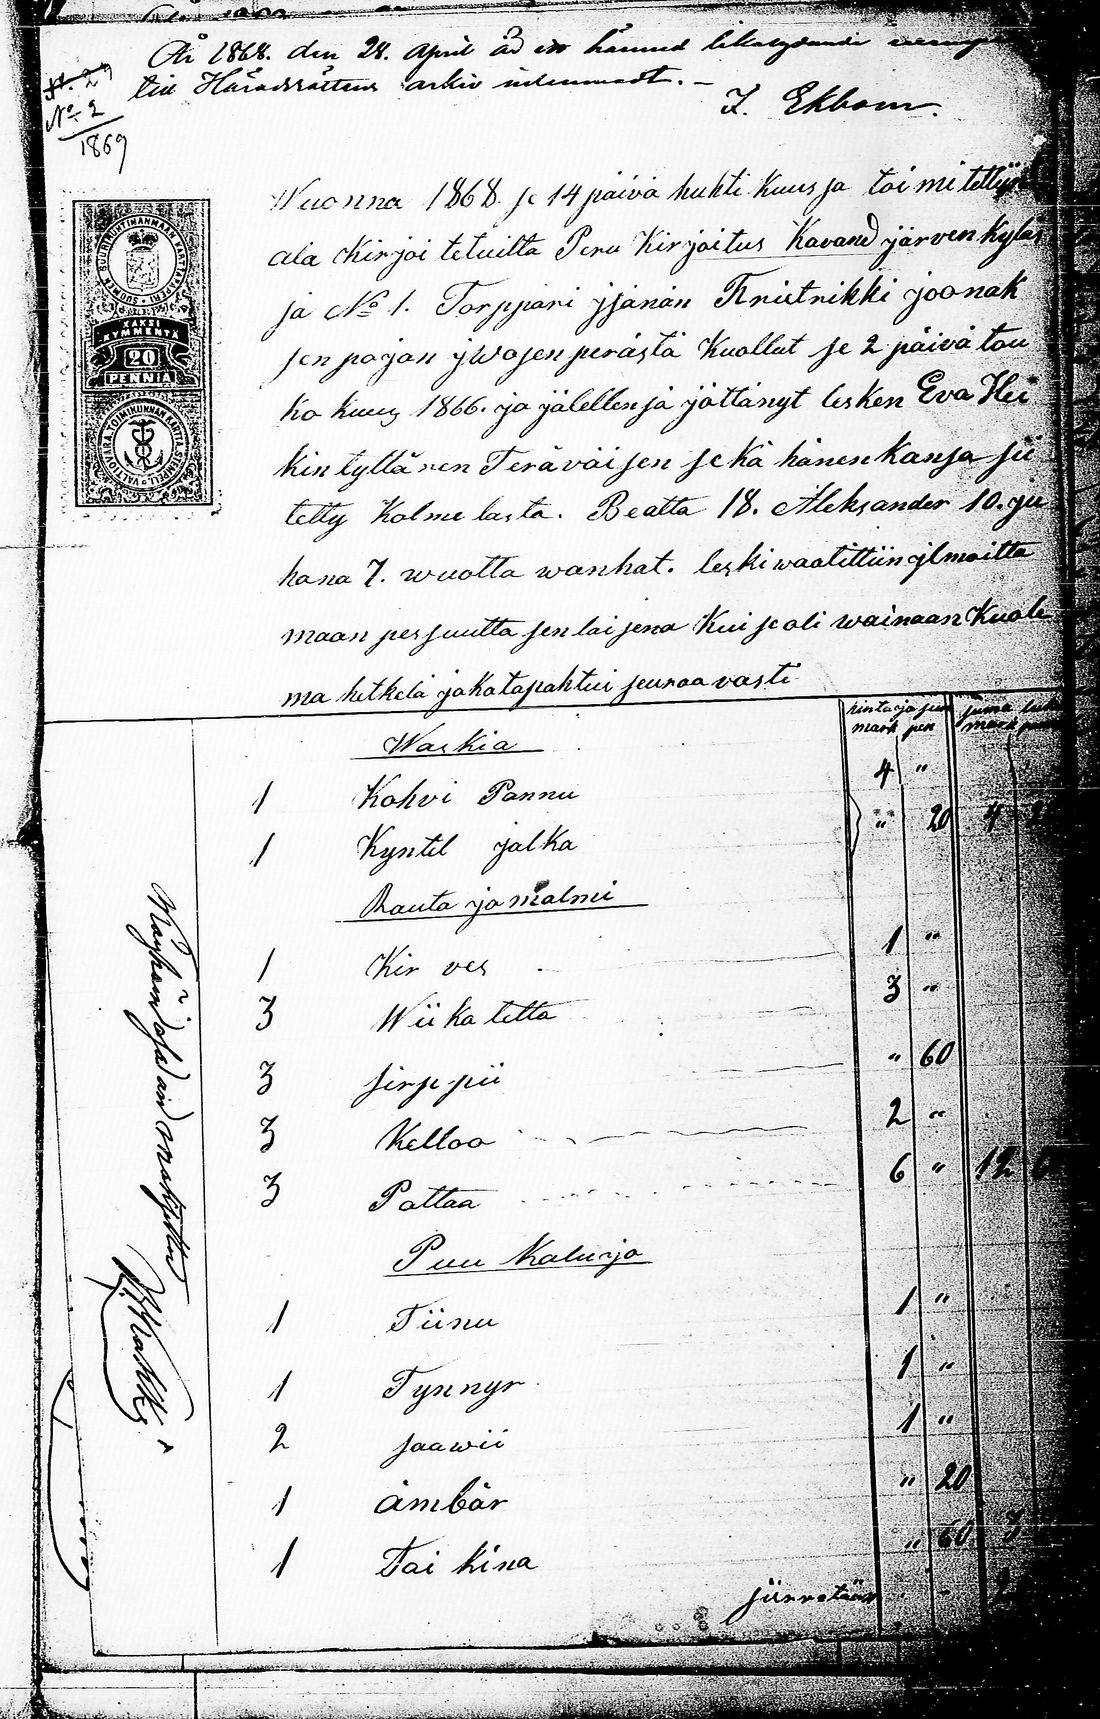 År 1868. den 28. April är ett härmed likalydande
till Häradsrättens arkiv inlemnadt. —
J. Ekbom.
N:o 2
1869
SUOMEN SUURIRUHTINANMAAN KARTTA
KAKSI
KYMMENTÄ
20
PENNIÄ
Wuonna 1868. se 14 päivä huhti kuus ja toimitettiin
ala kirjoi tetuilta Peru kirjoitus Kavand järven kyläs
sä No 1. Torppari jsänän Fristrikki joonak
sen pojan jwosen perästä kuollut se 2 päivä tou
ko kuus 1866. ja jälellensä jättänyt lesken Eva Hei
kin tyttären Teräväisen sekä hänen kansa sii
tetty Kolme lasta. Beatta 18. Aleksander 10. ju
hana 7. wuotta wanhat. leski waatittiin jlmoitta
maan pessuutta sen laisena Kui se oli wainaan Kuole
ma hetkelä joka tapahtui seuraavasti
hinta ja sun suma
mark pen mark
Waskia
1 Kohvi Pannu 4 "
1 Kyntel jalka " 20 4
Rauta ja malmi
1 Kir ves 1 "
3 Wiika tetta 3 "
3 sirppii " 60
3 Kelloo 2 "
3 Pattaa 6 " 12
Puu Kaluja
1 Tiinu 1 "
1 Tynnyr 1 "
2 saawii 1 "
1 ämbär " 20
1 Tai kina " 60 3
siirretään